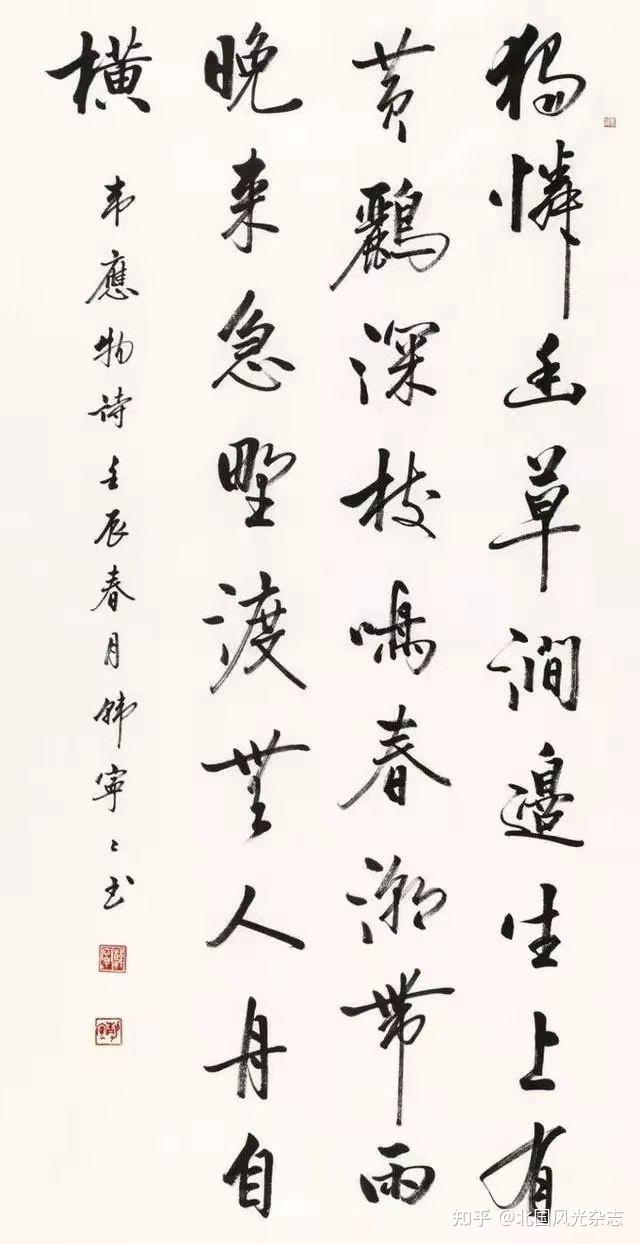 獨憐幽草澗邊生上有
黄鸝深枝鳴春潮帶雨
晚來急野渡無人舟自
橫
韋應物诗壬辰春月韩寧〻书
知乎 @北国风光杂志